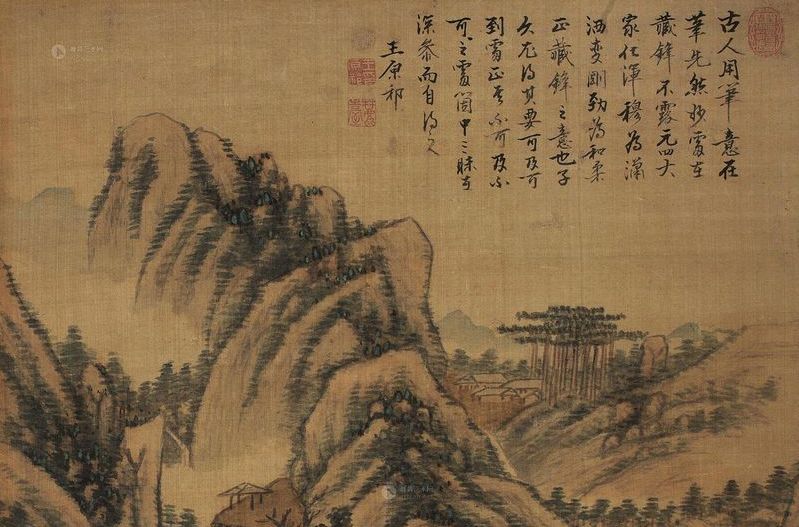 古人用筆意在
筆先然妙處在
藏鋒不露元四大
家化渾穆為瀟
洒變剛勁為和柔
正藏鋒之意也子
久尤得其要可及可
到處正是不可及不
可之處箇中三昧在
深參而自得之
王原祁